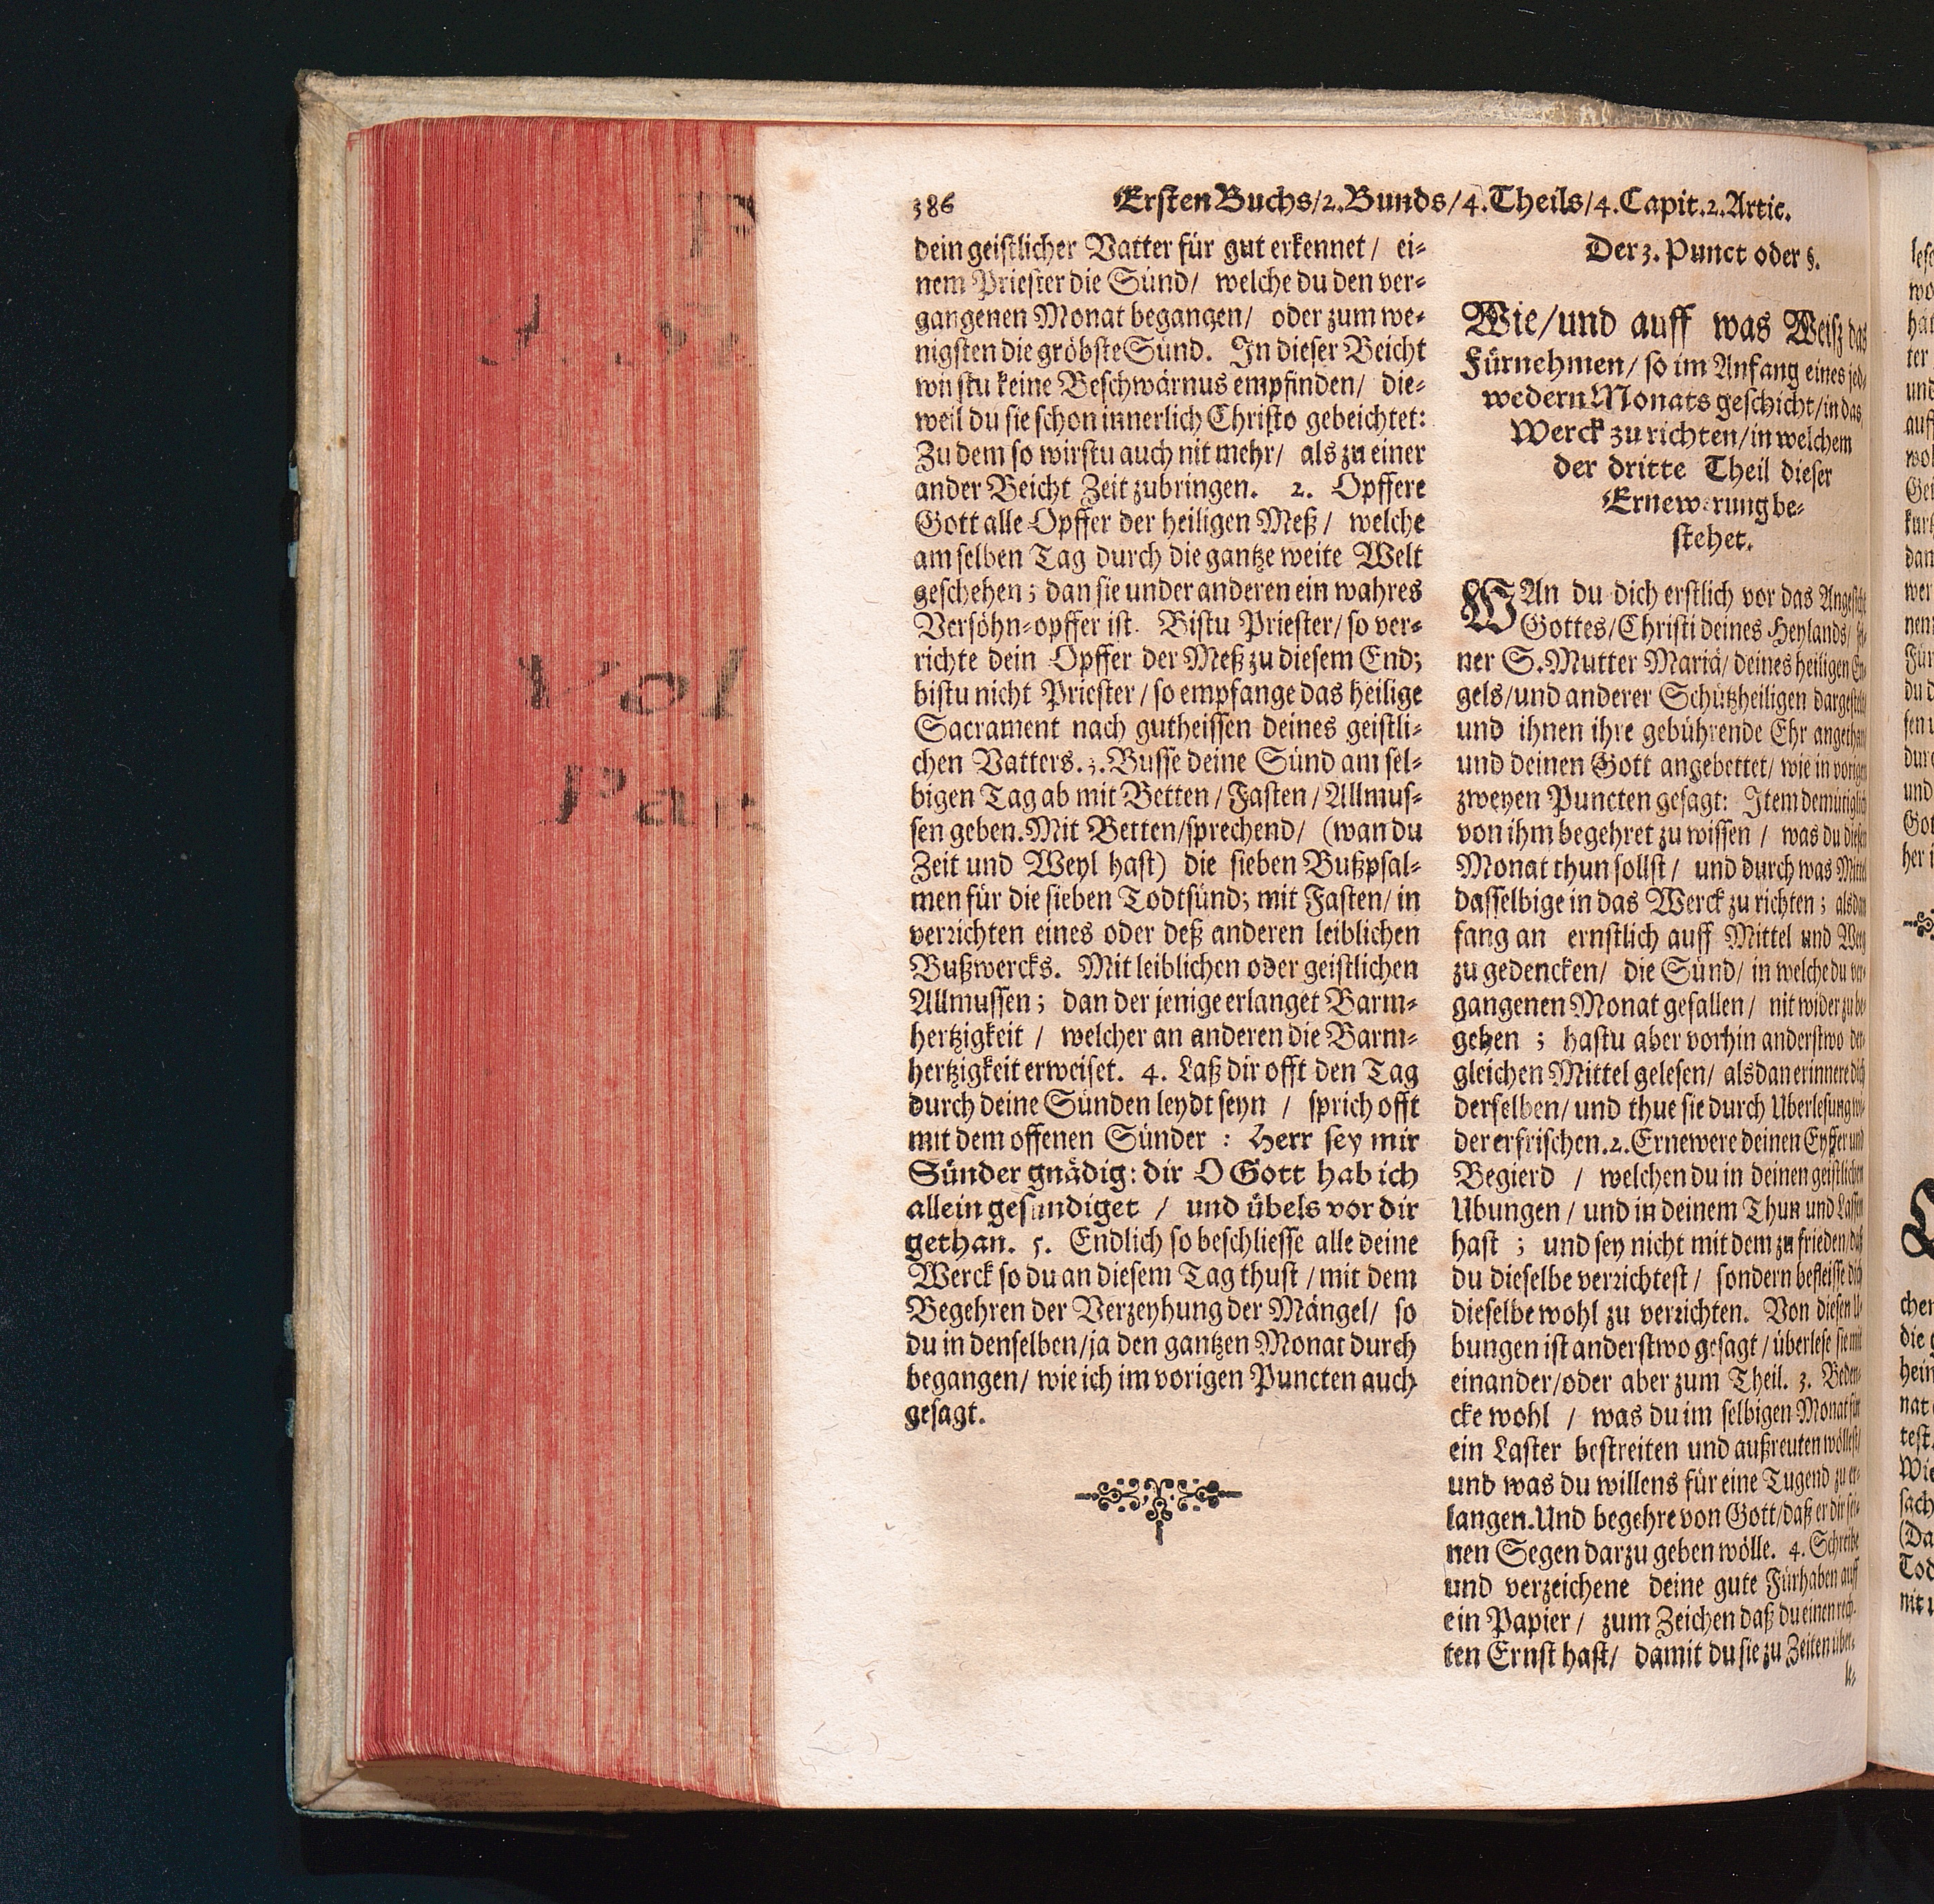 386
Ersten Buchs/2.Bunds/4.Theils/4.Capit.2.Artic.
dein geistlicher Vatter für gut erkennet/ ei⸗
nem Priester die Sünd/ welche du den ver⸗
gangenen Monat begangen/ oder zum we⸗
nigsten die gröbste Sünd. In dieser Beicht
wirstu keine Beschwärnus empfinden/ die⸗
weil du sie schon innerlich Christo gebeichtet:
Zu dem so wirstu auch nit mehr/ als zu einer
ander Beicht Zeit zubringen. 2. Opffere
Gott alle Opffer der heiligen Meß/ welche
am selben Tag durch die gantze weite Welt
geschehen; dan sie under anderen ein wahres
Versöhn⸗opffer ist. Bistu Priester/ so ver⸗
richte dein Opffer der Meß zu diesem End;
bistu nicht Priester/ so empfange das heilige
Sacrament nach gutheissen deines geistli⸗
chen Vatters. 3. Busse deine Sünd am sel⸗
bigen Tag ab mit Betten/ Fasten/ Allmus⸗
sen geben. Mit Betten/sprechend/ (wan du
Zeit und Weyl hast) die sieben Bußpsal⸗
men für die sieben Todtsünd; mit Fasten/ in
verrichten eines oder deß anderen leiblichen
Bußwercks. Mit leiblichen oder geistlichen
Allmussen; dan der jenige erlanget Barm⸗
hertzigkeit / welcher an anderen die Barm⸗
hertzigkeit erweiset. 4. Laß dir offt den Tag
durch deine Sünden leydt seyn / sprich offt
mit dem offenen Sünder : Herr sey mir
Sünder gnädig: dir O Gott hab ich
allein gesündiget / und übels vor dir
gethan. 5. Endlich so beschliesse alle deine
Werck so du an diesem Tag thust / mit dem
Begehren der Verzeyhung der Mängel/ so
du in denselben/ja den gantzen Monat durch
begangen/ wie ich im vorigen Puncten auch
gesagt.
Der 3. Punct oder §.
Wie/und auff was Weiß das
Fürnehmen/ so im Anfang eines jed⸗
wedern Monats geschicht/in das
Werck zu richten/in welchem
der dritte Theil dieser
Ernewerung be⸗
stehet.
WAn du dich erstlich vor das Angesicht
Gottes/Christi deines Heylands/ sei⸗
ner S. Mutter Mariä/ deines heiligen En⸗
gels/und anderer Schützheiligen dargestellt
und ihnen ihre gebührende Ehr angethan
und deinen Gott angebettet/ wie in vorigen
zweyen Puncten gesagt: Item demütiglich
von ihm begehret zu wissen / was du diesen
Monat thun sollst/ und durch was Mittel
dasselbige in das Werck zu richten; alsdan
fang an ernstlich auff Mittel und Weeg
zu gedencken/ die Sünd/ in welche du ver⸗
gangenen Monat gefallen/ nit wider zu be⸗
gehen ; hastu aber vorhin anderstwo der⸗
gleichen Mittel gelesen/ alsdan erinnere dich
derselben/ und thue sie durch Uberlesung wi⸗
der erfrischen. 2. Ernewere deinen Eyffer und
Begierd / welchen du in deinen geistlichen
Ubungen / und in deinem Thun und Lassen
hast ; und sey nicht mit dem zu frieden/daß
du dieselbe verrichtest/ sondern befleisse dich
dieselbe wohl zu verrichten. Von diesen U⸗
bungen ist anderstwo gesagt/ überlese sie mit
einander/oder aber zum Theil. 3. Beden⸗
cke wohl / was du im selbigen Monat für
ein Laster bestreiten und außreuten wöllest/
und was du willens für eine Tugend zu er⸗
langen. Und begehre von Gott/daß er dir sei⸗
nen Segen darzu geben wölle. 4. Schreibe
und verzeichene deine gute Fürhaben auff
ein Papier/ zum Zeichen daß du einen rech⸗
ten Ernst hast/ damit du sie zu Zeiten über⸗
le⸗
Vol